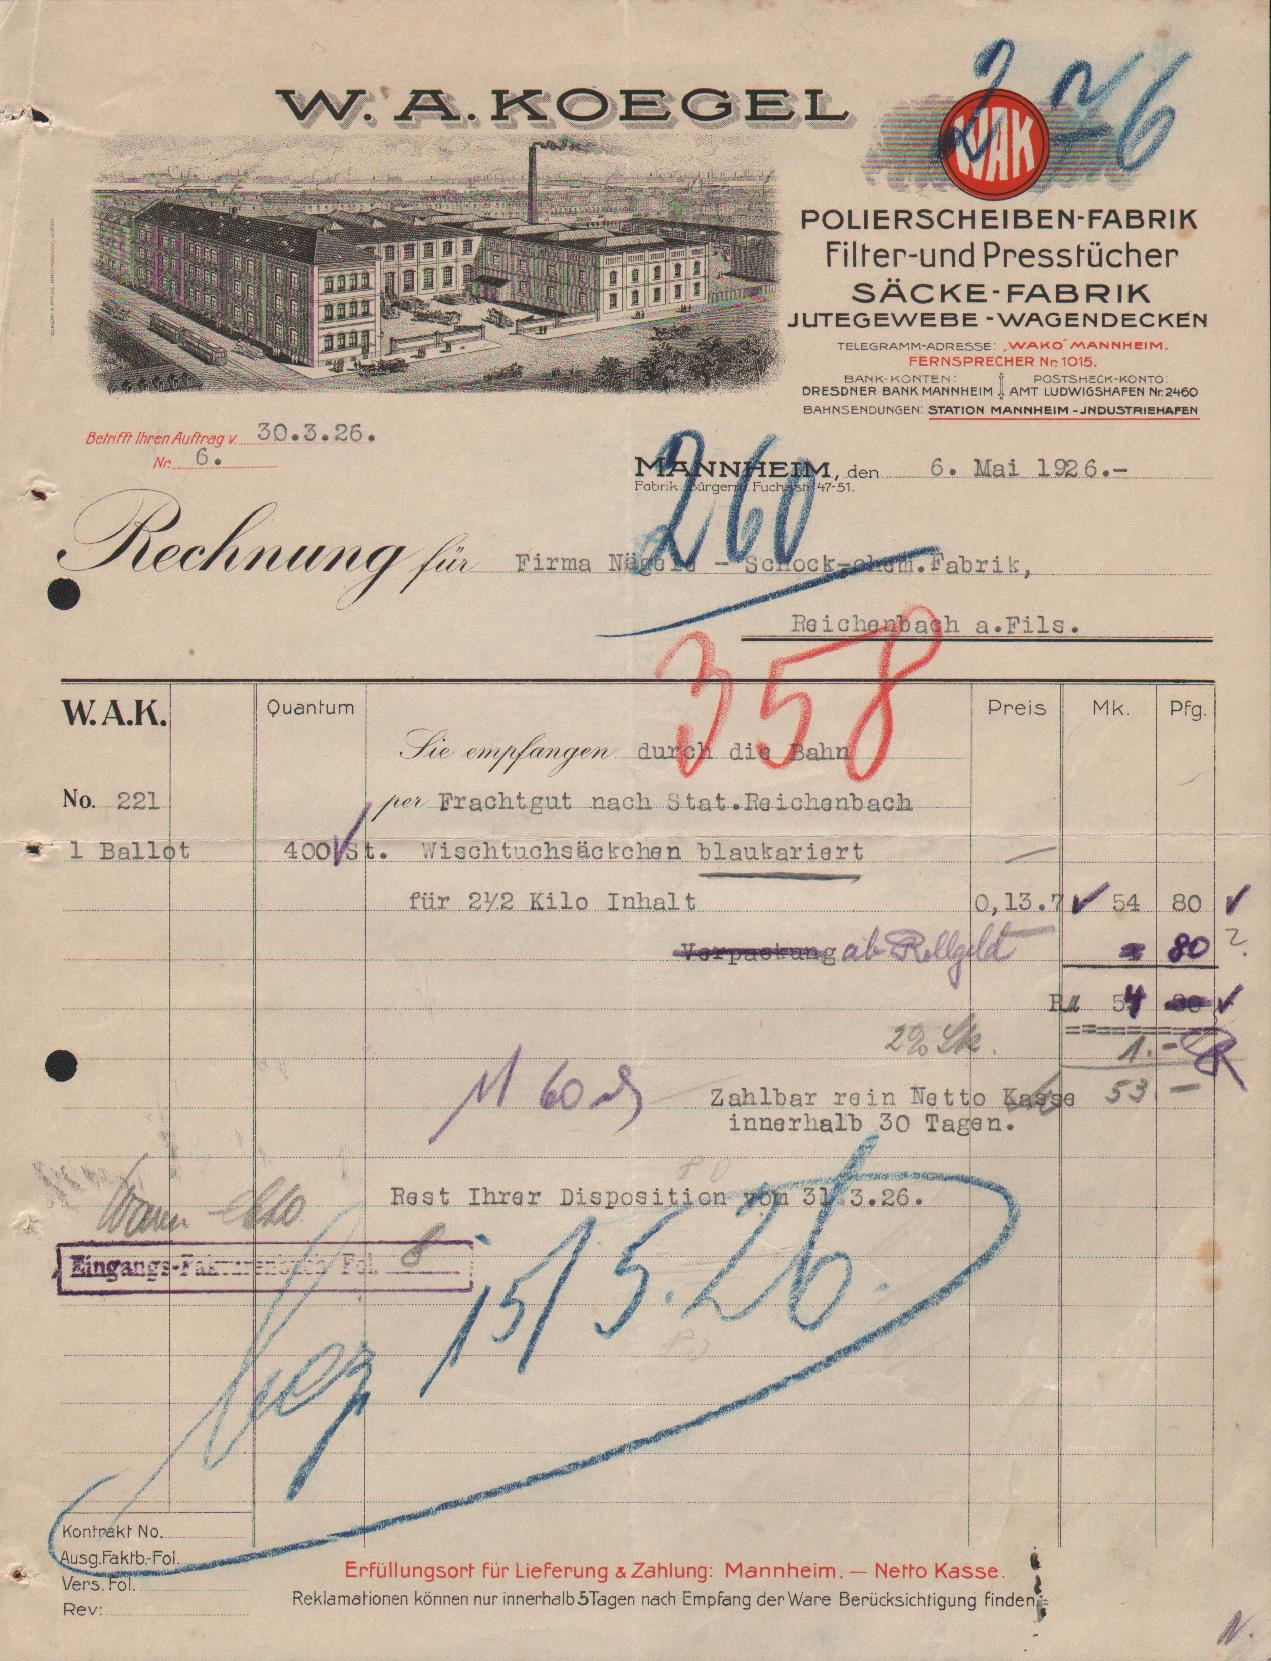 W. A. KOEGEL
WAK
2 26
POLIERSCHEIBEN-FABRIK
Filter-und Presstücher
SÄCKE-FABRIK
JUTEGEWEBE-WAGENDECKEN
TELEGRAMM-ADRESSE: „WAKO" MANNHEIM.
FERNSPRECHER Nr. 1015.
BANK-KONTEN: POSTSHECK-KONTO:
DRESDNER BANK MANNHEIM AMT LUDWIGSHAFEN Nr. 2460
BAHNSENDUNGEN: STATION MANNHEIM-JNDUSTRIEHAFEN
Betrifft Ihren Auftrag v. 30.3.26.
Nr. 6.
MANNHEIM, den 6. Mai 1926.-
Fabrik: Bürgerm. Fuchsstr. 47-51.
260
Rechnung für Firma Nägele - Schock-chem.Fabrik,
Reichenbach a.Fils.
358
W.A.K. Quantum Preis Mk. Pfg.
Sie empfangen durch die Bahn
No. 221 per Frachtgut nach Stat.Reichenbach
1 Ballot 400 St. Wischtuchsäckchen blaukariert
für 2½ Kilo Inhalt 0,13.7 54 80
Verpackung ab Rollgeld 80 ?
RM 54
2% Sk. 1.-
M 60 Zahlbar rein Netto Kasse 53 -
innerhalb 30 Tagen.
Rest Ihrer Disposition vom 31.3.26.
Waren
Eingangs-Fakturenbuch Fol. 8
bez 15/5.26.
Kontrakt No.
Ausg.Faktb.-Fol.
Vers. Fol.
Rev:
Erfüllungsort für Lieferung & Zahlung: Mannheim. — Netto Kasse.
Reklamationen können nur innerhalb 5 Tagen nach Empfang der Ware Berücksichtigung finden.
N.